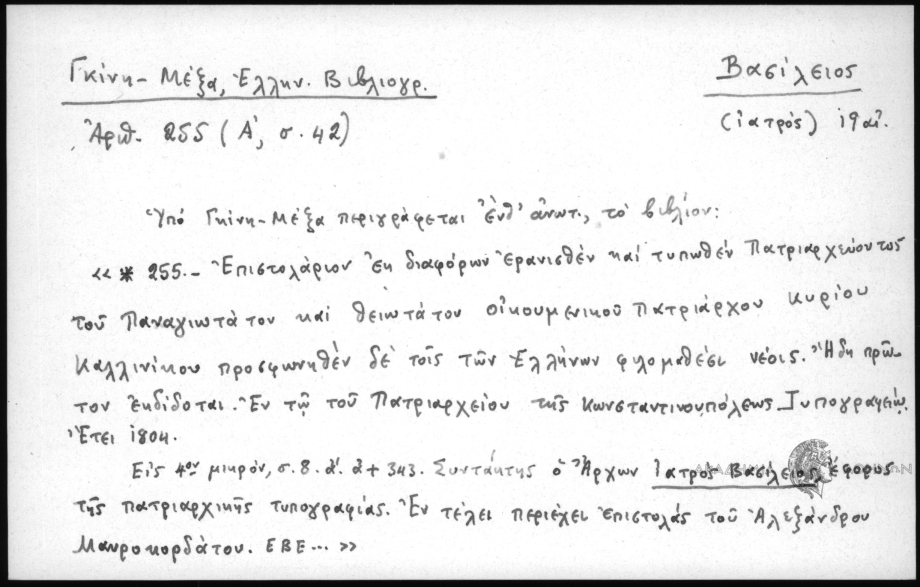 Γκίνη - Μέξα, Ἑλλην. Βιβλιογρ.
Βασίλειος
Ἀριθ. 255 (Α', σ. 42)
(ἰατρός) 19 αἰ.
Ὑπό Γκίνη-Μέξα περιγράφεται ἔνθ' ἀνωτ., τὸ βιβλίον:
«* 255.- Ἐπιστολάριον ἐκ διαφόρων ἐρανισθέν καί τυπωθέν Πατριαρχεύοντος
τοῦ Παναγιωτάτου καί θειωτάτου οἰκουμενικοῦ Πατριάρχου κυρίου
Καλλινίκου προσφωνηθέν δὲ τοῖς τῶν Ἑλλήνων φιλομαθέσι νέοις. Ἤδη πρῶ-
τον ἐκδίδοται. Ἐν τῷ τοῦ Πατριαρχείου τῆς Κωνσταντινουπόλεως Τυπογραφείῳ.
Ἔτει 1804.
Εἰς 4ον μικρόν, σ. 8. ἀ. ἀ + 343. Συντάκτης ὁ Ἄρχων Ἰατρός Βασίλειος, ἔφορος
τῆς πατριαρχικῆς τυπογραφίας. Ἐν τέλει περιέχει ἐπιστολάς τοῦ Ἀλεξάνδρου
Μαυροκορδάτου. ΕΒΕ... »